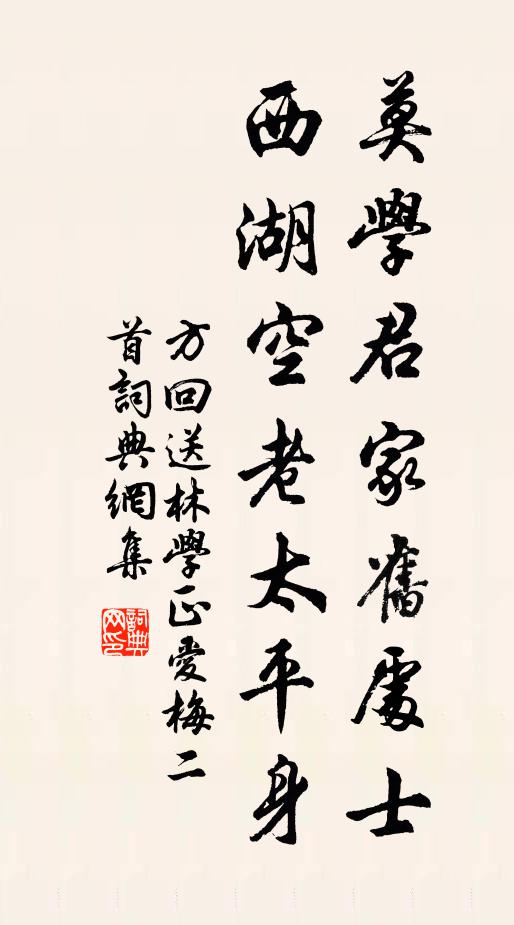 莫學君家舊處士
西湖空老太平身
方回送林學正愛梅二
首詞典網集
詞典网印